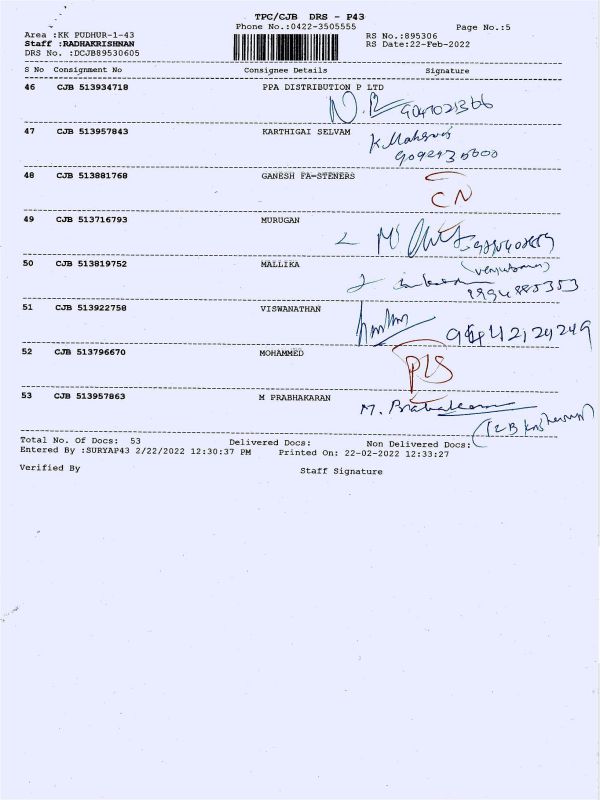 TPC/CJB DRS - P43
Phone No.:0422-3505555 Page No.:5
Area :KK PUDHUR-1-43 RS No.:895306
Staff :RADHAKRISHNAN RS Date:22-Feb-2022
DRS No. :DCJB89530605
S No Consignment No Consignee Details Signature
46 CJB 513934718 PPA DISTRIBUTION P LTD
47 CJB 513957843 KARTHIGAI SELVAM
48 CJB 513881768 GANESH FA-STENERS
CN
49 CJB 513716793 MURUGAN
50 CJB 513819752 MALLIKA
1994885353
51 CJB 513922758 VISWANATHAN
52 CJB 513796670 MOHAMMED
PLS
53 CJB 513957863 M PRABHAKARAN
M. Prabakaran
Total No. Of Docs: 53 Delivered Docs: Non Delivered Docs:
Entered By :SURYAP43 2/22/2022 12:30:37 PM Printed On: 22-02-2022 12:33:27
Verified By Staff Signature